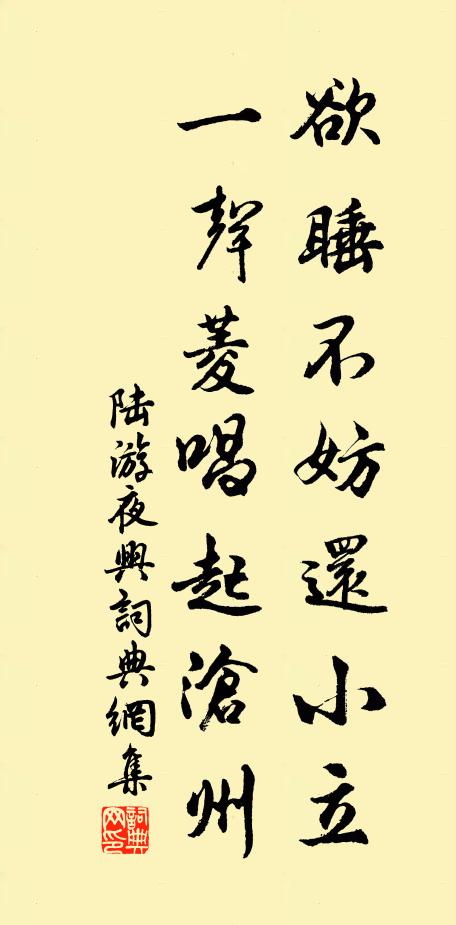 欲睡不妨還小立
一聲菱唱起滄州
陸游夜興詞典網集
詞典
网印